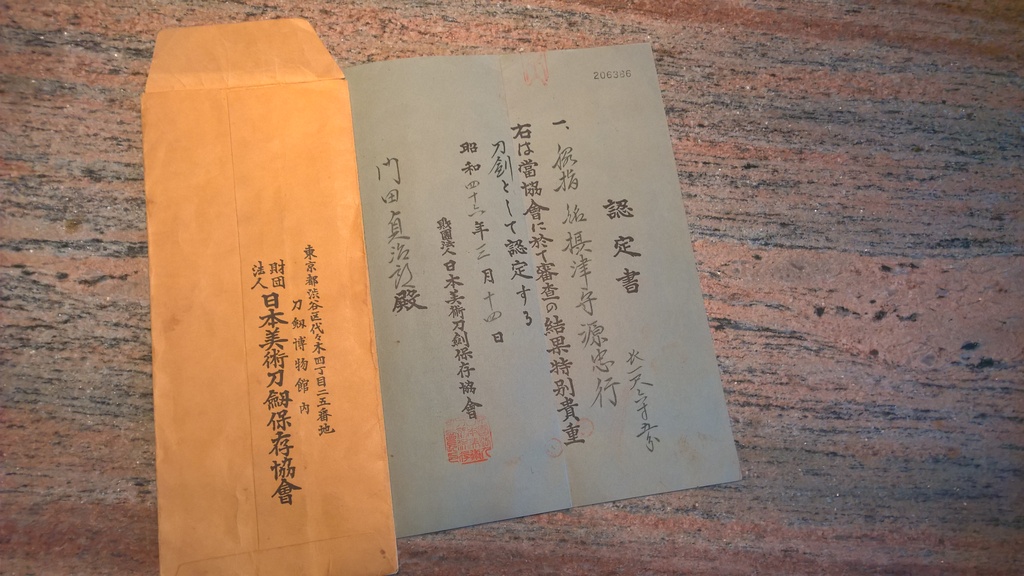 206386
認定書
一、脇指 銘 摂津守源忠行
長一尺六寸五分
右は當協會に於て審査の結果特別貴重
刀劍として認定する
昭和四十六年三月十四日
財團法人 日本美術刀劍保存協會
門田貞治郎殿
東京都渋谷区代々木四丁目二五番地
刀劔博物館内
財団法人 日本美術刀劔保存協會